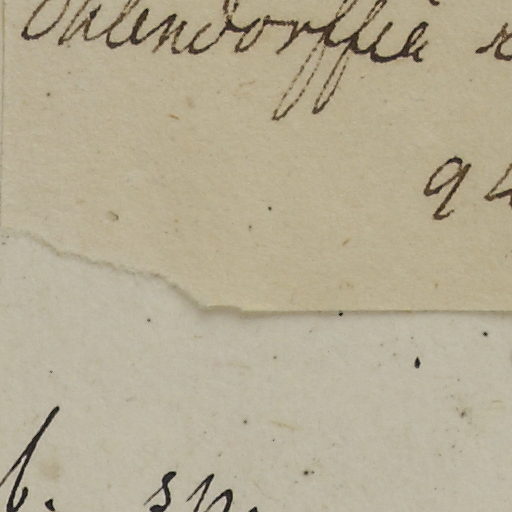 Ohlendorffia
9
b. sp.